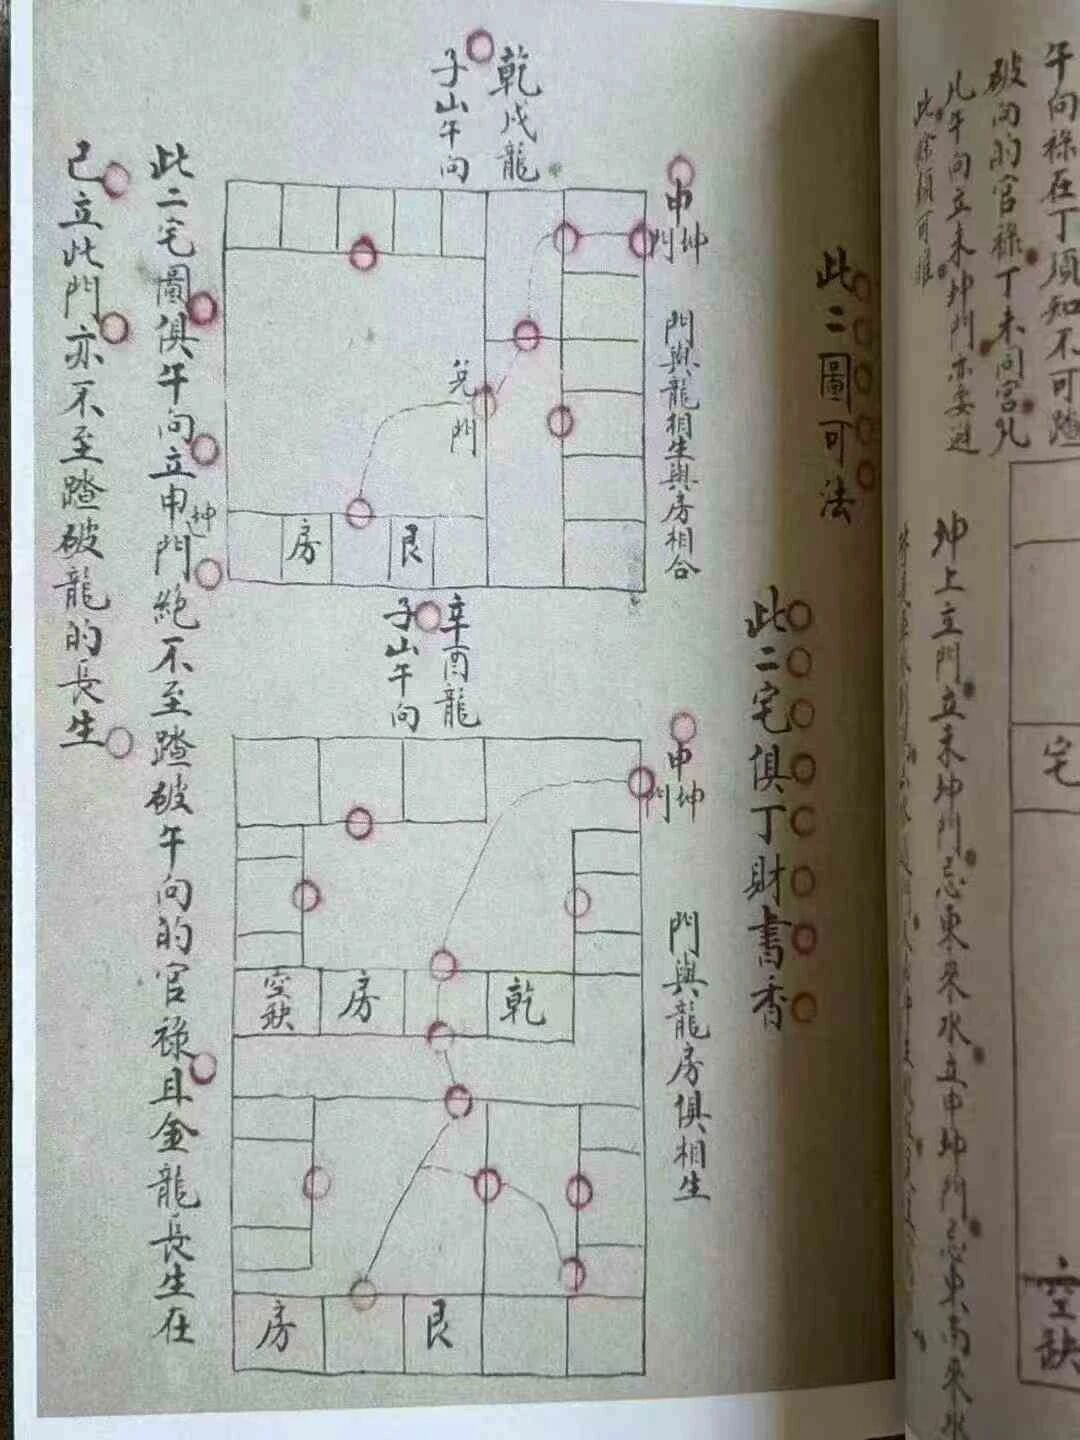 午向祿在丁須知不可踏
破向的官祿丁未同宮凡
凡午向立未坤門亦要避
此餘類可推
坤上立門立未坤門忌東來水立申坤門忌東南來水
宅
空缺
此二圖可法
此二宅俱丁財書香
乾戌龍
子山午向
申坤門
門與龍相生與房相合
兌門
房
艮
辛酉龍
子山午向
申坤門
門與龍房俱相生
空缺
房
乾
房
艮
此二宅圖俱午向立申坤門絶不至踏破午向的官祿且金龍長生在
己立此門亦不至踏破龍的長生